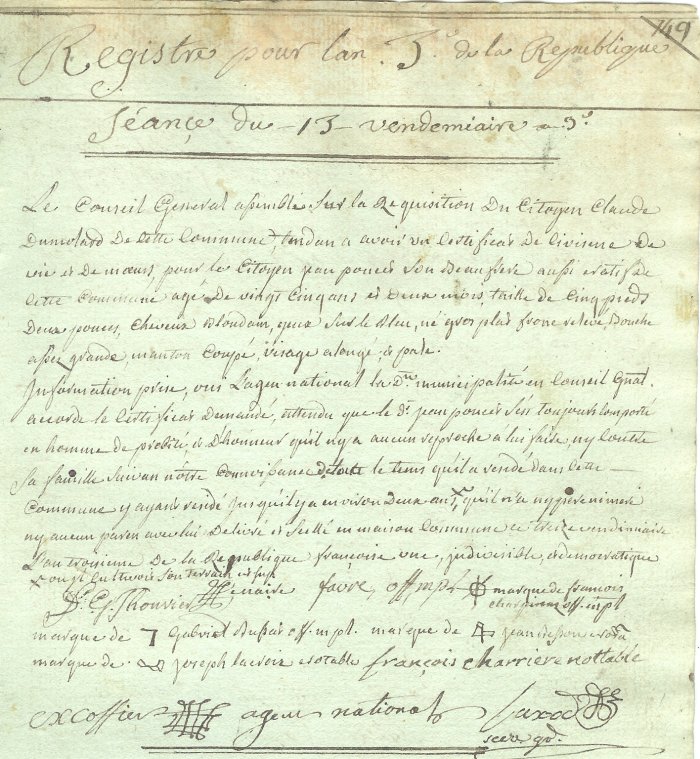 149
Registre pour lan 3.e de la Republique
Séance du 13 vendemiaire an 3.e
Le Conseil General assemblé sur la Requisition Du Citoyen Claude
Dumolard De Cette Commune, tendan a avoir un Certificat De Civisme De
vie et De mœurs, pour le Citoyen jean poncet Son Beaufrere aussi natif de
cette Commune agé De vingt Cinq ans et Deux mois, taille de Cinq pieds
Deux pouces, Cheveux Blondain, yeux Sur le Bleu, né gros plat front relevé, Bouche
assez grande, manton Coupé, visage alongé, et pale.
Information prise, ouis L'agen national la D.te municipalité en Conseil Gnāl.
accorde le Certificat Demandé, attendu que le d.t jean poncet s'est toujours Comporté
en homme de probité, et D'honneur qu'il ny a aucun reproche a lui faire, ny Contre
Sa famille Suivan nôtre Connoissance de tout le tems qu'il a residé dans cette
Commune y ayant residé jusqu'il y a environ Deux ans, qu'il n'a ny pere ni mere
ny aucun paren avec lui Delivré et Scellé en maison Commune ce treize vendimiaire
L'an troisieme De la Republique françoise une, indivisible, et democratique
F. G. Thouvier maire favre, off mpl marque de françois
off. mpl
marque de Gabriel Bussat off. mpl. marque de jean
marque de joseph lacroix notable françois charriere nottable
excoffier agent national
secre gr.